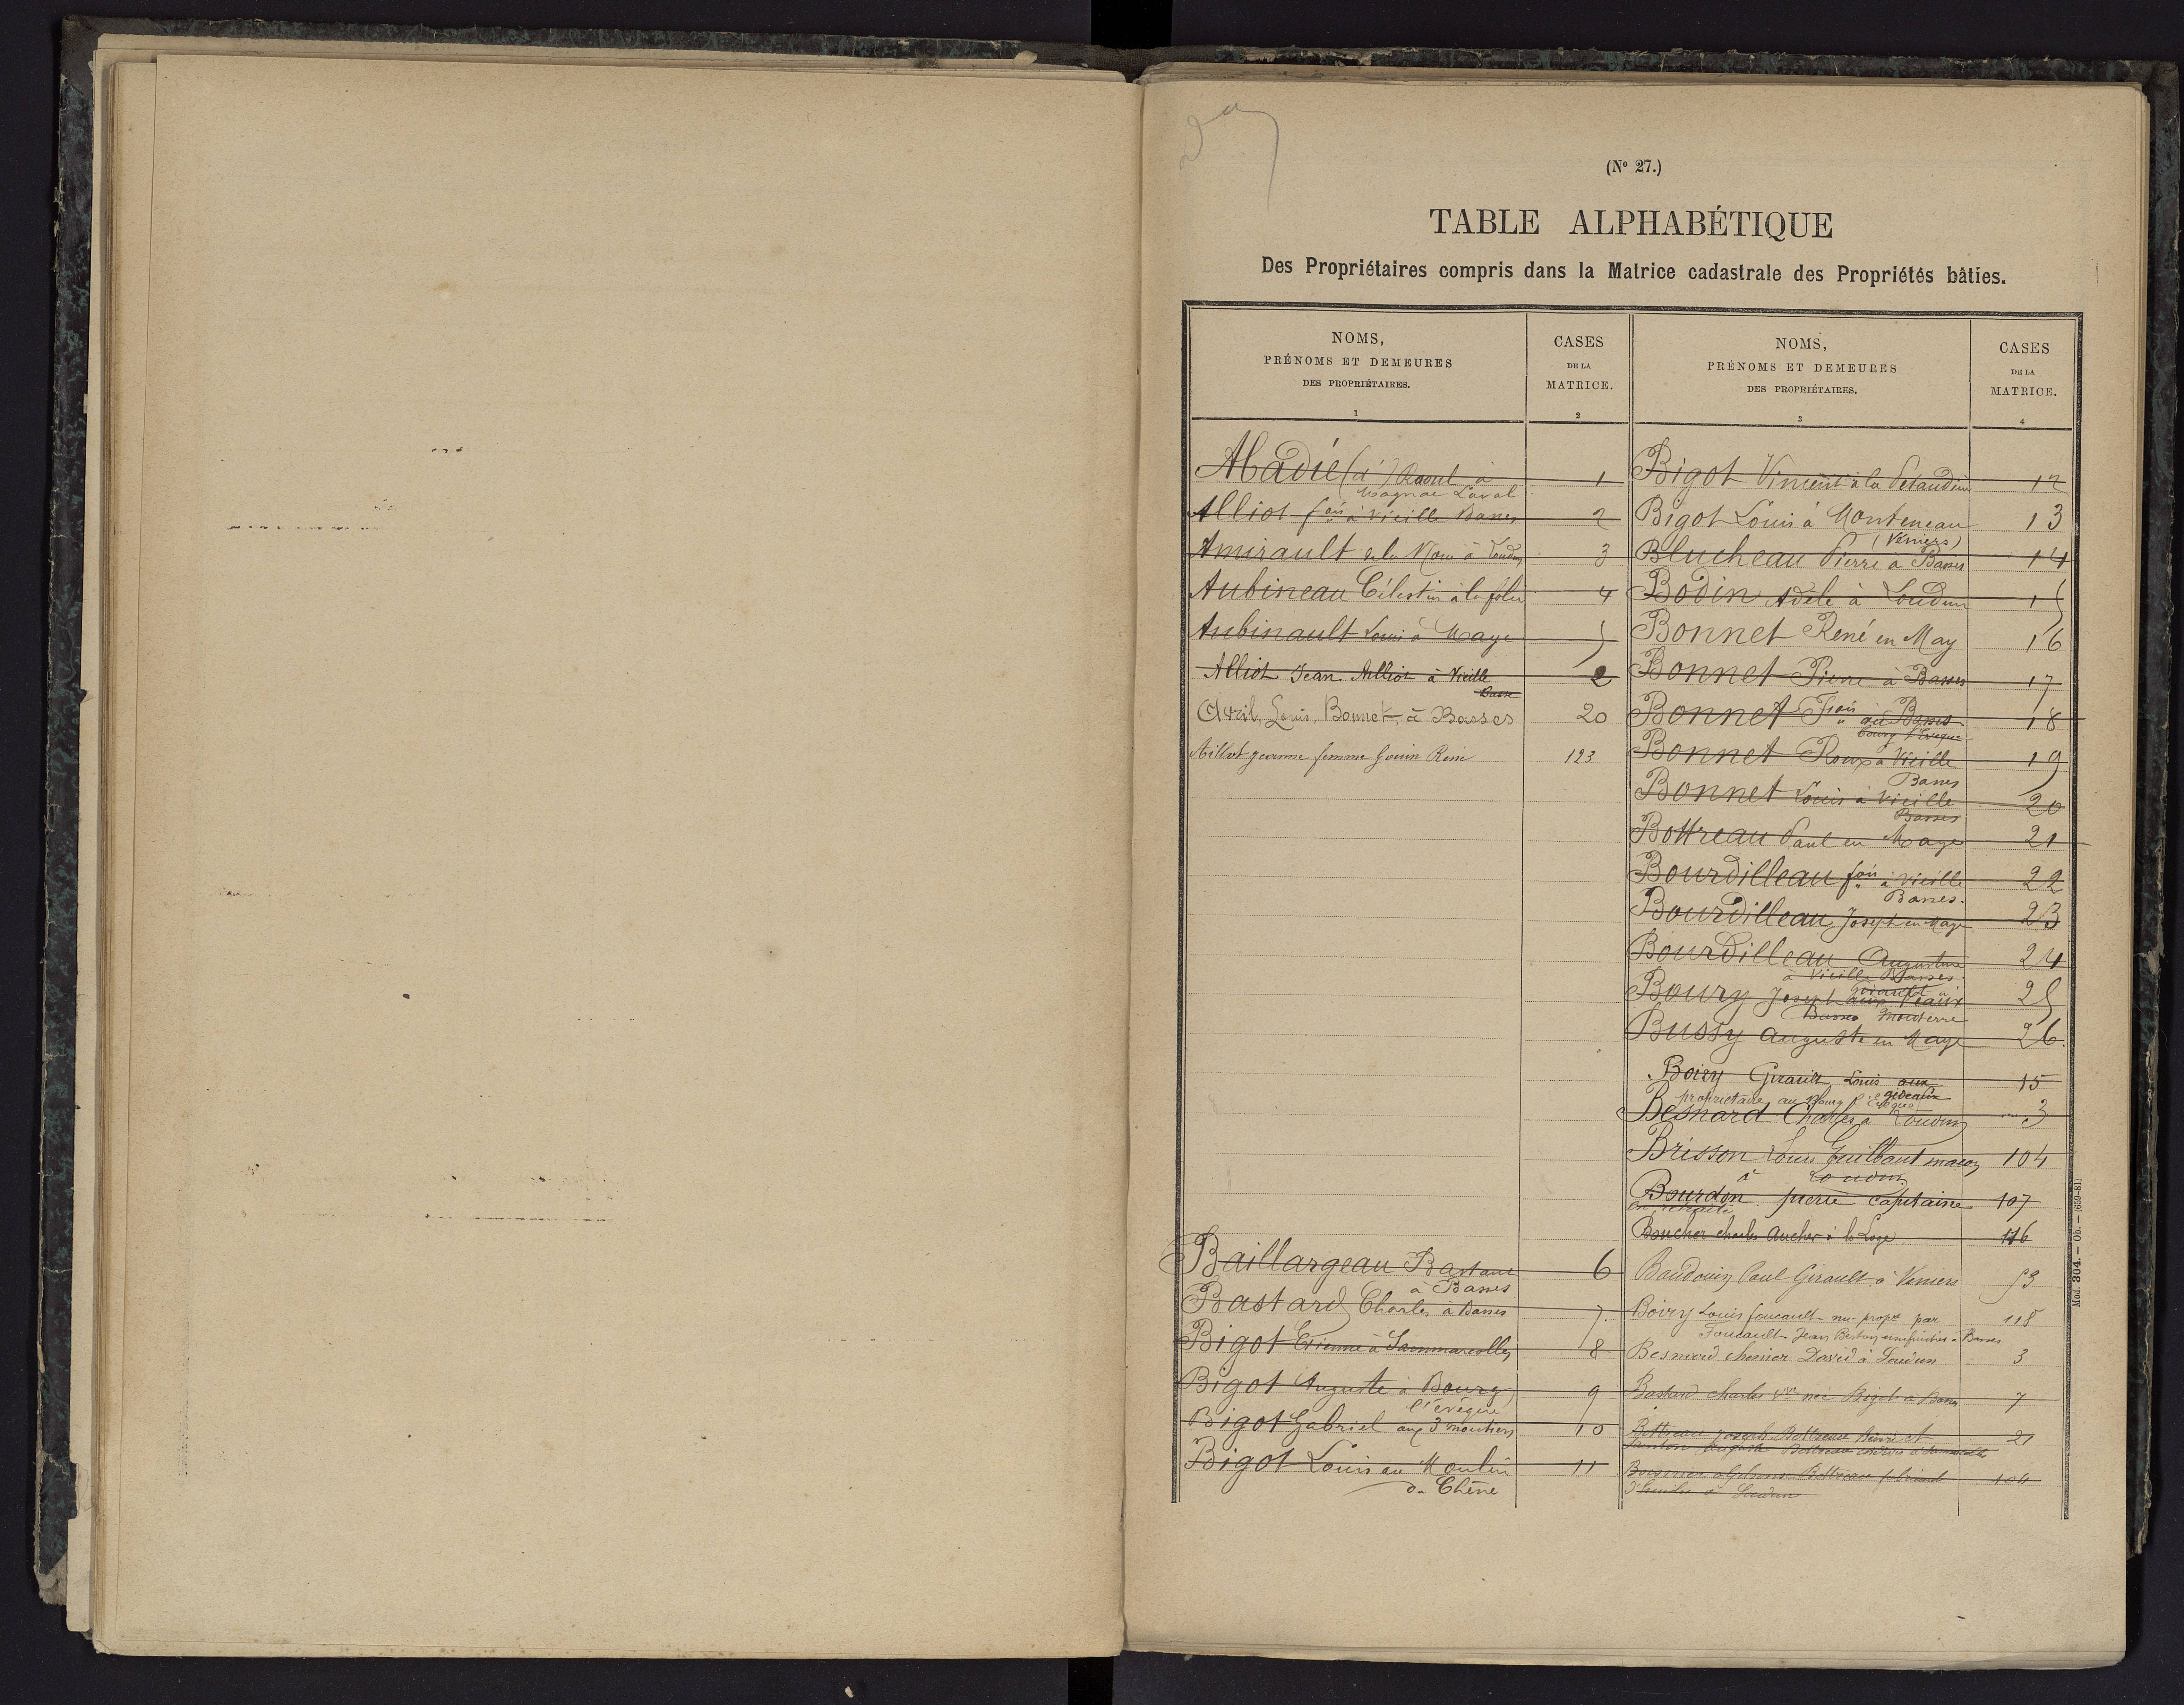 (Nº 27.)
TABLE ALPHABÉTIQUE
Des Propriétaires compris dans la Matrice cadastrale des Propriétés bâties.
NOMS,
PRÉNOMS ET DEMEURES
DES PROPRIÉTAIRES.
1
CASES
DE LA
MATRICE.
2
NOMS,
PRÉNOMS ET DEMEURES
DES PROPRIÉTAIRES.
3
CASES
DE LA
MATRICE.
4
Abadie (d') Raoul à 1
Magnac Laval
Alliot fois à Vieille Basses 2
Amirault à Loudun 3
Aubineau Célestin à la folie 4
Aubinault Louis à Maye 5
Alliot Jean Alliot à Vieille 2
Basse
Avril, Louis, Bonnet, à Basses 20
Aillot jeanne femme Gouin René 123
Baillargeau Bastard 6
à Basses
Bastard Charles à Basses 7
Bigot Etienne à Sammarcolles 8
Bigot Auguste à Bourg 9
l'évêque
Bigot Gabriel aux 3 moutiers 10
Bigot Louis au Moulin 11
du Chêne
Bigot Vincent à la 12
Bigot Louis à Monteneau 13
(Véniers)
Blucheau Pierre à Basses 14
Bodin Adèle à Loudun 15
Bonnet René en May 16
Bonnet Pierre à Basses 17
Bonnet Fçois 18
bourg l'Evêque
Bonnet Roux à Vieille 19
Basses
Bonnet Louis à Vieille 20
Basses
Bottreau Paul en Maye 21
Bourdilleau fois à Vieille 22
Basses.
Bourdilleau Joseph en Maye 23
Bourdilleau Augustine 24
à Vieille Basses.
Boury Joseph 25
Basses Mouterre
Bussy Auguste en Maye 26.
Boiry Girault Louis aux 15
propriétaire au Bourg l'Evêque
Besnard Charles à Loudun 3
Brisson Louis Guilbaut maçon 104
à Loudun
Bourdon pierre capitaine 107
en retraite
Boucher charles Aucher à la Loge 116
Baudouin Paul Girault à Veniers 53
Boiry Louis foucault nu-propre par 118
Foucault Jean Berton usufruitier à Basses
Besnard chenier David à Loudun 3
Bastard Charles Vve née Bigot à Basses 7
Bottreau joseph Bottreau 21
Auguste Bottreau
Alphonse Bottreau 104
à Loudun
Mod. 304. — Ob. — (659-81)